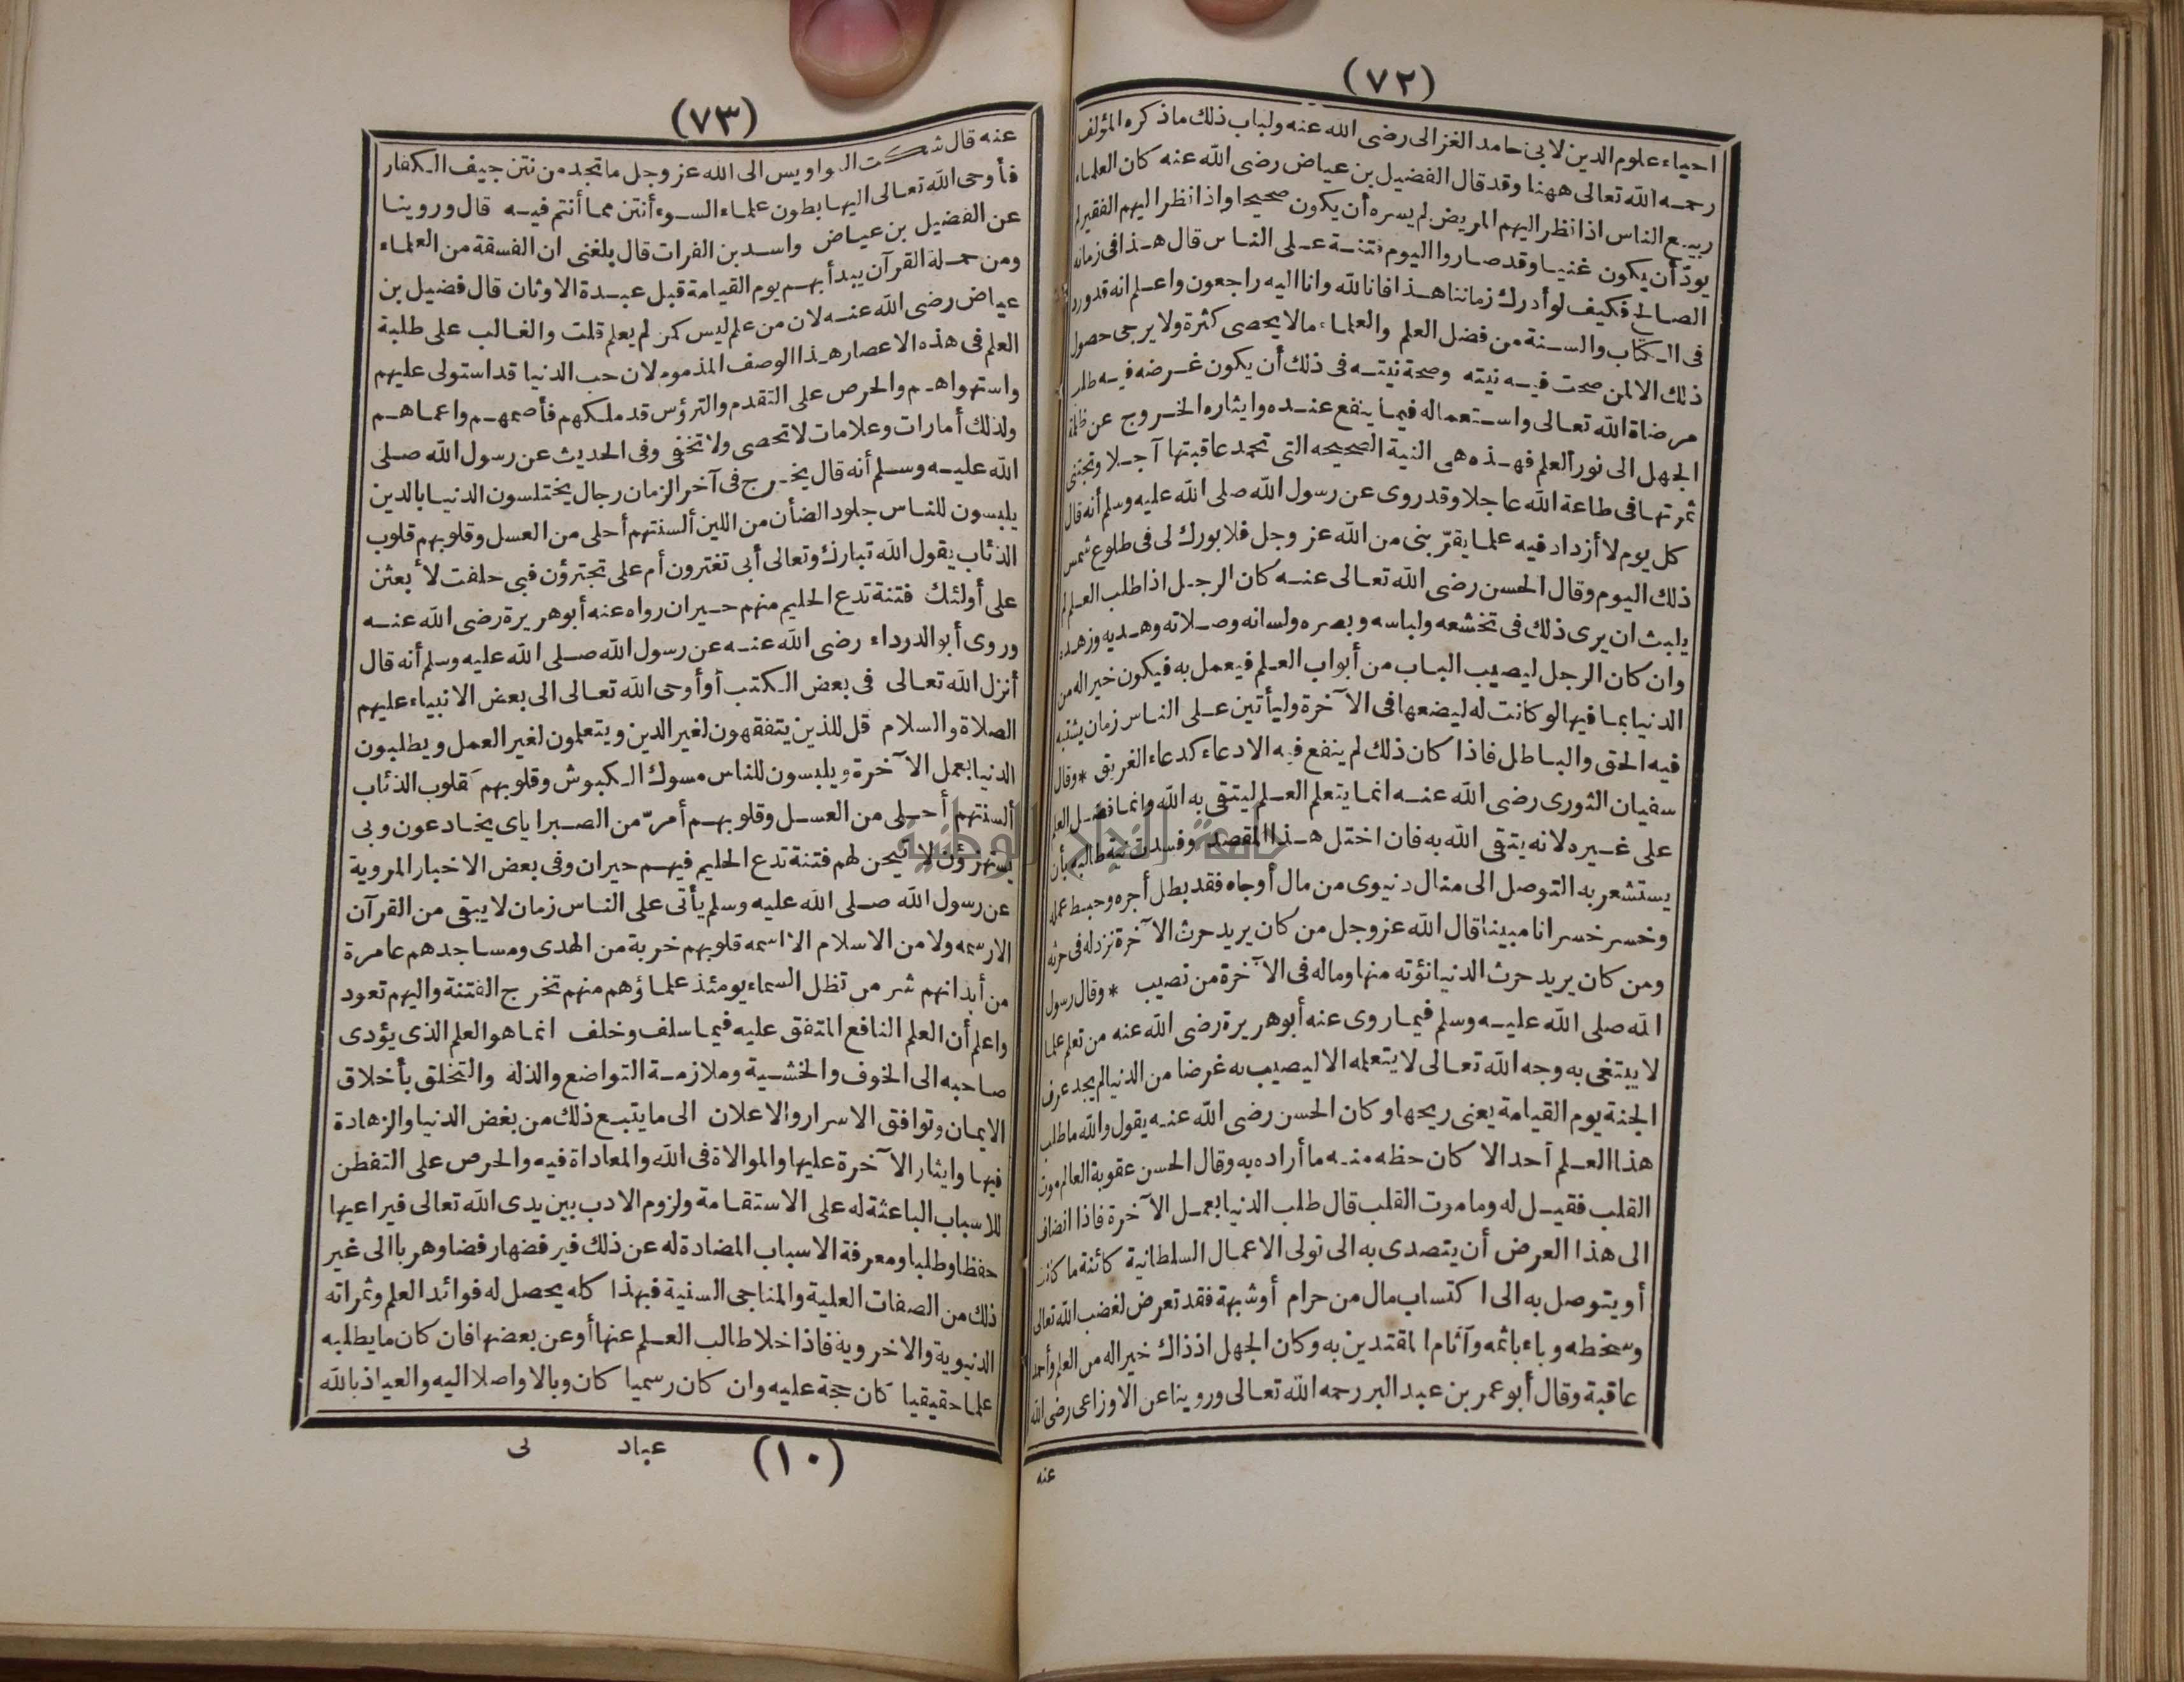 (٧٢)
احياء علوم الدين لابى حامد الغزالى رضى الله عنه ولباب ذلك ماذكره المؤلف
رحمه الله تعالى ههنا وقد قال الفضيل بن عياض رضى الله عنه كان العلماء
ربيع الناس اذا نظر اليهم المريض لم يسره أن يكون صحيحا واذا نظر اليهم الفقير لم
يودّ أن يكون غنيا وقد صاروا اليوم فتنة على الناس قال هذا فى زمانه
الصالح فكيف لو أدرك زماننا هذا فانا لله وانا اليه راجعون واعلم انه قد ورد
فى الكتاب والسنة من فضل العلم والعلماء مالا يحصى كثرة ولا يرجى حصول
ذلك الا لمن صحت فيه نيته وصحة نيته فى ذلك أن يكون غرضه فيه طلب
مرضاة الله تعالى واستعماله فيما ينفع عنده وايثاره الخروج عن ظلمة
الجهل الى نور العلم فهذه هى النية الصحيحه التى تحمد عاقبتها آجلا وتجتنى
ثمرتها فى طاعة الله عاجلا وقد روى عن رسول الله صلى الله عليه وسلم أنه قال
كل يوم لا أزداد فيه علما يقرّبنى من الله عز وجل فلا بورك لى فى طلوع شمس
ذلك اليوم وقال الحسن رضى الله تعالى عنه كان الرجل اذا طلب العلم لم
يلبث ان يرى ذلك فى تخشعه ولباسه وبصره ولسانه وصلاته وهديه وزهده
وان كان الرجل ليصيب الباب من أبواب العلم فيعمل به فيكون خيرا له من
الدنيا بما فيها لو كانت له ليضعها فى الآخرة وليأتين على الناس زمان يشتبه
فيه الحق والباطل فاذا كان ذلك لم ينفع فيه الا دعاء كدعاء الغريق * وقال
سفيان الثورى رضى الله عنه انما يتعلم العلم ليتقى به الله وانما فضل العلم
على غيره لانه يتقى الله به فان اختل هذا المقصد وفسدت نية طالبه بأن
يستشعر به التوصل الى منال دنيوى من مال أو جاه فقد بطل أجره وحبط عمله
وخسر خسرانا مبينا قال الله عز وجل من كان يريد حرث الآخرة نزد له فى حرثه
ومن كان يريد حرث الدنيا نؤته منها وماله فى الآخرة من نصيب * وقال رسول
الله صلى الله عليه وسلم فيما روى عنه أبو هريرة رضى الله عنه من تعلم علما
لا يبتغى به وجه الله تعالى لا يتعلمه الا ليصيب به غرضا من الدنيا لم يجد عرف
الجنة يوم القيامة يعنى ريحها وكان الحسن رضى الله عنه يقول والله ما طلب
هذا العلم أحد الا كان حظه منه ما أراده به وقال الحسن عقوبة العالم موت
القلب فقيل له وما موت القلب قال طلب الدنيا بعمل الآخرة فاذا انضاف
الى هذا العرض أن يتصدى به الى تولى الاعمال السلطانية كائنة ما كانت
أو يتوصل به الى اكتساب مال من حرام أو شبهة فقد تعرض لغضب الله تعالى
وسخطه وباء باثمه وآثام المقتدين به وكان الجهل اذ ذاك خيرا له من العلم وأحمد
عاقبة وقال أبو عمر بن عبد البر رحمه الله تعالى وروينا عن الاوزاعى رضى الله
عنه
(٧٣)
عنه قال شكت النواويس الى الله عز وجل ما تجد من نتن جيف الكفار
فأوحى الله تعالى اليها بطون علماء السوء أنتن مما أنتم فيه قال وروينا
عن الفضيل بن عياض واسد بن الفرات قال بلغنى ان الفسقة من العلماء
ومن حملة القرآن يبدأ بهم يوم القيامة قبل عبدة الاوثان قال فضيل بن
عياض رضى الله عنه لان من علم ليس كمن لم يعلم قلت والغالب على طلبة
العلم فى هذه الاعصار هذا الوصف المذموم لان حب الدنيا قد استولى عليهم
واستهواهم والحرص على التقدم والترؤس قد ملكهم فأصمهم واعماهم
ولذلك أمارات وعلامات لا تحصى ولا تخفى وفى الحديث عن رسول الله صلى
الله عليه وسلم أنه قال يخرج فى آخر الزمان رجال يختلسون الدنيا بالدين
يلبسون للناس جلود الضأن من اللين ألسنتهم أحلى من العسل وقلوبهم قلوب
الذئاب يقول الله تبارك وتعالى أبى تغترون أم على تجترؤن فبى حلفت لأبعثن
على أولئك فتنة تدع الحليم منهم حيران رواه عنه أبو هريرة رضى الله عنه
وروى أبو الدرداء رضى الله عنه عن رسول الله صلى الله عليه وسلم أنه قال
أنزل الله تعالى فى بعض الكتب أو أوحى الله تعالى الى بعض الانبياء عليهم
الصلاة والسلام قل للذين يتفقهون لغير الدين ويتعلمون لغير العمل ويطلبون
الدنيا بعمل الآخرة ويلبسون للناس مسوك الكبوش وقلوبهم كقلوب الذئاب
ألسنتهم أحلى من العسل وقلوبهم أمرّ من الصبر اياى يخادعون وبى
يستهزؤن لاتيحن لهم فتنة تدع الحليم فيهم حيران وفى بعض الاخبار المروية
عن رسول الله صلى الله عليه وسلم يأتى على الناس زمان لا يبقى من القرآن
الا رسمه ولا من الاسلام الا اسمه قلوبهم خربة من الهدى ومساجدهم عامرة
من أبدانهم شر من تظل السماء يومئذ علماؤهم منهم تخرج الفتنة واليهم تعود
واعلم أن العلم النافع المتفق عليه فيما سلف وخلف انما هو العلم الذى يؤدى
صاحبه الى الخوف والخشية وملازمة التواضع والذلة والتخلق بأخلاق
الايمان وتوافق الاسرار والاعلان الى ما يتبع ذلك من بغض الدنيا والزهادة
فيها وايثار الآخرة عليها والموالاة فى الله والمعاداة فيه والحرص على التفطن
للاسباب الباعثة له على الاستقامة ولزوم الادب بين يدى الله تعالى فيراعيها
حفظا وطلبا ومعرفة الاسباب المضادة له عن ذلك فيرفضها رفضا وهربا الى غير
ذلك من الصفات العلية والمناجى السنية فبهذا كله يحصل له فوائد العلم وثمراته
الدنيوية والاخروية فاذا خلا طالب العلم عنها أو عن بعضها فان كان ما يطلبه
علما حقيقيا كان حجة عليه وان كان رسميا كان وبالا واصلا اليه والعياذ بالله
(١٠) عباد نى
جامعة النجاح الوطنية